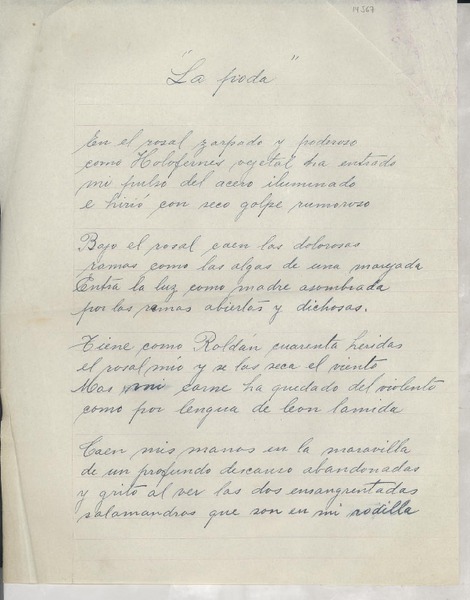 M367
"La poda"
En el rosal zarpado y poderoso
como Holofernes vegetal ha entrado
mi pulso del acero iluminado
e hirió con seco golpe rumoroso
Bajo el rosal caen las dolorosas
ramas como las algas de una marejada
Entra la luz como madre asombrada
por las ramas abiertas y dichosas.
Tiene como Roldán cuarenta heridas
el rosal mío y se las seca el viento
Mas mi carne ha quedado del violento
como por lengua de leon lamida
Caen mis manos en la maravilla
de un profundo descanso abandonadas
y grito al ver las dos ensangrentadas
salamandras que son en mi rodilla